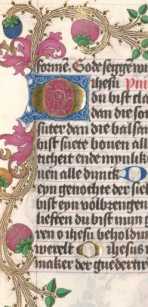 formē. Gode segge w
ihesu
du bist cla
dan die son
suter dan die balsem
bist suete bouen all
richeit ende mynlik
uen alle dinck
eyn genochte der siel
bist eyn volbrengen
lieffen du bist mijn g
ren o ihesu beholdn
werelt O ihesus
maker der guedertre